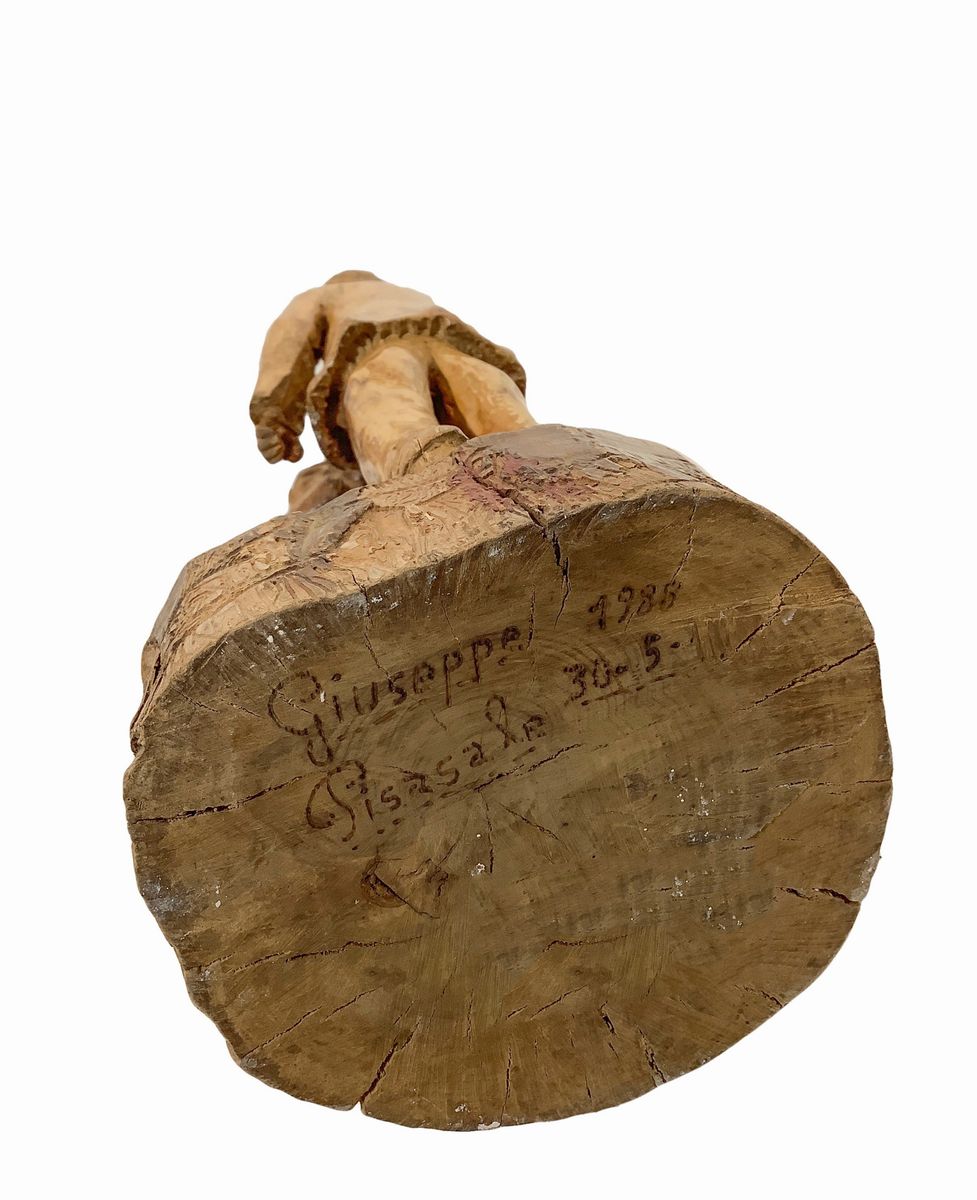 Giuseppe
Pisasale
30-5-